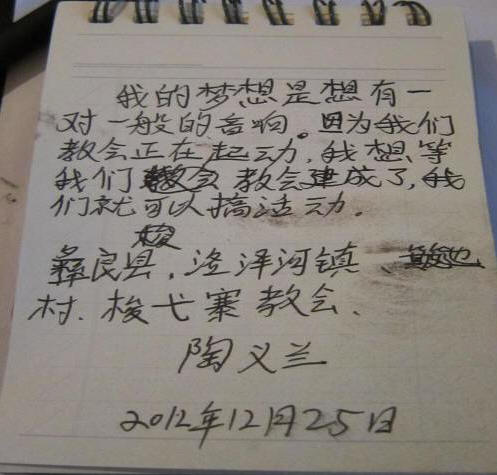 我的梦想是想有一
对一般的音响。因为我们
教会正在起动，我想等
我们教会建成了，我
们就可以搞活动。
彝良县，洛泽河镇、
村、梭戈寨教会、
陶义兰
2012年12月25日